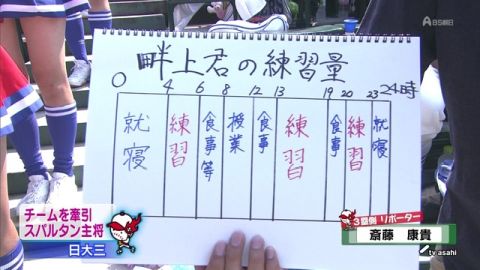 BS朝日
畔上君の練習量
0 4 6 8 12 13 19 20 23 24時
就寝
練習
食事等
授業
食事
練習
食事
練習
就寝
チームを牽引
スパルタン主将
日大三
3塁側 リポーター
斎藤 康貴
tv asahi